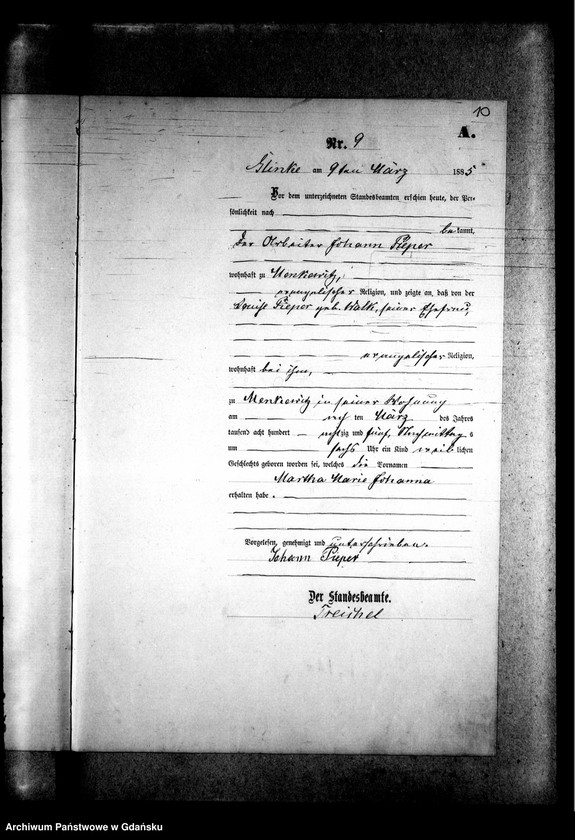 10
A.
Nr. 9
Glinke am 9ten März 1885
Vor dem unterzeichneten Standesbeamten erschien heute, der Per-
sönlichkeit nach
bekannt,
der Arbeiter Johann Pieper
wohnhaft zu Menkewitz,
evangelischer Religion, und zeigte an, daß von der
Louise Pieper geb. Walk, seiner Ehefrau,
evangelischer Religion,
wohnhaft bei ihm,
zu Menkewitz in seiner Wohnung
am ten März des Jahres
tausend acht hundert achtzig und fünf, Nachmittags
um sechs Uhr ein Kind weiblichen
Geschlechts geboren worden sei, welches die Vornamen
Martha Marie Johanna
erhalten habe.
Vorgelesen, genehmigt und unterschrieben.
Johann Pieper
Der Standesbeamte.
Treichel
Archiwum Państwowe w Gdańsku